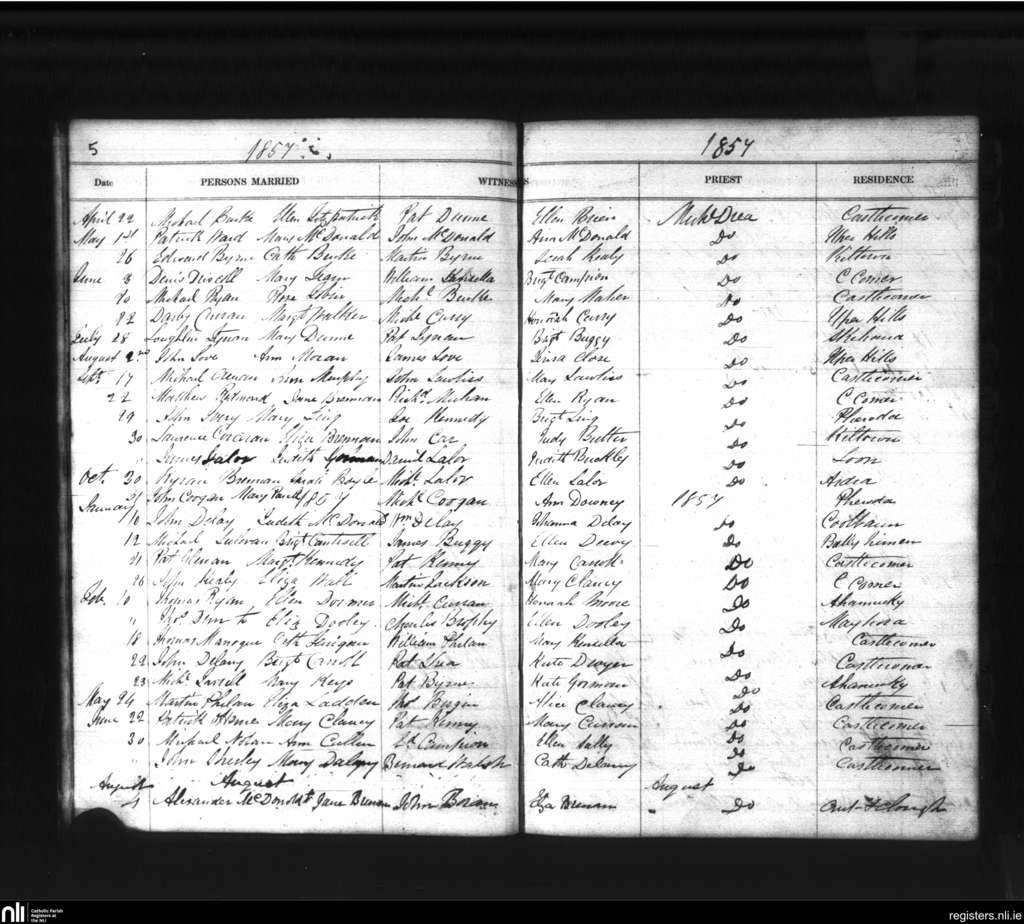 5 1857 1857
Date PERSONS MARRIED WITNESSES PRIEST RESIDENCE
April 22 Michael Burke Ellen Fitzpatrick Pat Dunne Ellen Brien Michl Drea Castlecomer
May 1st Patrick Ward Mary McDonald John McDonald Ann McDonald Do Uper Hills
26 Edward Byrne Cath Burke Martin Byrne Healy Do Kiltown
June 8 Denis Driscoll Mary William Brigt Campion Do C Comer
20 Michael Ryan Rose Tobin Michl Burke Mary Maher Do Castlecomer
22 Darby Curran Margt Walker Michl Curry Honorah Curry Do Uper Hills
July 28 Loughlin Tynan Mary Dunne Pat Tynan Brigt Buggy Do Skehana
August 2nd John Love Ann Moran James Love Close Do Uper Hills
Sept 17 Michael Ann Murphy John Lawliss May Lawliss Do Castlecomer
22 Matthew Redmond Jane Brennan Richd Mulhan Ellen Ryan Do C Comer
29 John Ivery Mary Ling Joe Kennedy Brigt Ling Do
30 Laurence Corcoran Eliza Brennan John Car Judy Butler Do Kiltown
" James Lalor Judith Daniel Lalor Judith Buckley Do Loon
Oct 30 Kyran Brennan Sarah Boyle Michl Lalor Ellen Lalor Do Ardra
31 John Coogan Mary 1857 Michl Coogan Ann Downey 1857
January
10 John Delay Judith McDonald Wm Delay Johanna Delay Do Coolbaun
12 Michael Sullivan Brigt Cantwell James Buggy Ellen Do
21 Pat Margt Kennedy Pat Kenny Mary Carroll Do Castlecomer
26 John Healy Eliza Wall Martin Jackson Mary Clancy Do C Comer
Feb. 10 Thomas Ryan Ellen Dormer Michl Curran Honorah Moore Do
" Thos Eliza Dooley Charles Brophy Ellen Dooley Do
18 Thomas Manogue Cath William Philan Mary Kinsella Do Castlecomer
22 John Delany Brigt Carroll Pat Shea Kate Dwyer Do Castlecomer
23 Michl Farrell Mary Keys Pat Byrne Kate Gorman Do
May 24 Martin Philan Eliza Ladden Thos Alice Clancy Do Castlecomer
June 22 Patrick Mary Clancy Pat Kenny Mary Curran Do Castlecomer
30 Michael Nolan Ann Cullen Campion Ellen Do Castlecomer
" John Mary Delany Bernard Walsh Cath Delaney Do Castlecomer
August August August
4 Alexander McDonald Jane Brennan John Eliza Brennan Do
nli Catholic Parish
Registers at
the NLI
registers.nli.ie